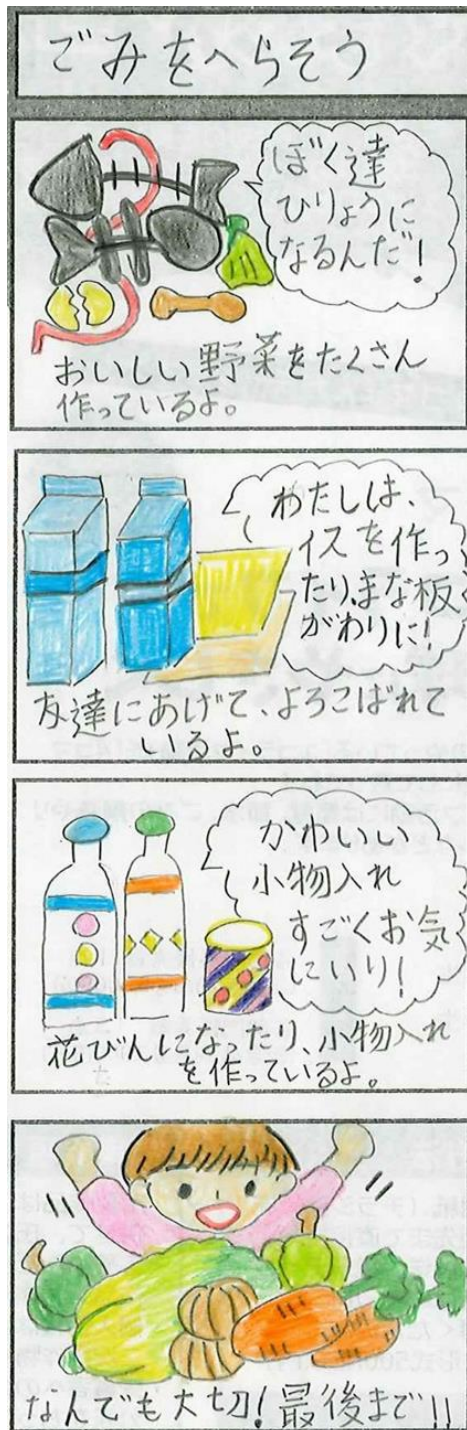 ごみをへらそう
ぼく達
ひりょうに
なるんだ!
おいしい野菜をたくさん
作っているよ。
わたしは、
イスを作っ
たり、まな板
がわりに!
友達にあげて、よろこばれて
いるよ。
かわいい
小物入れ
すごくお気
にいり!
花びんになったり、小物入れ
を作っているよ。
なんでも大切!最後まで!!